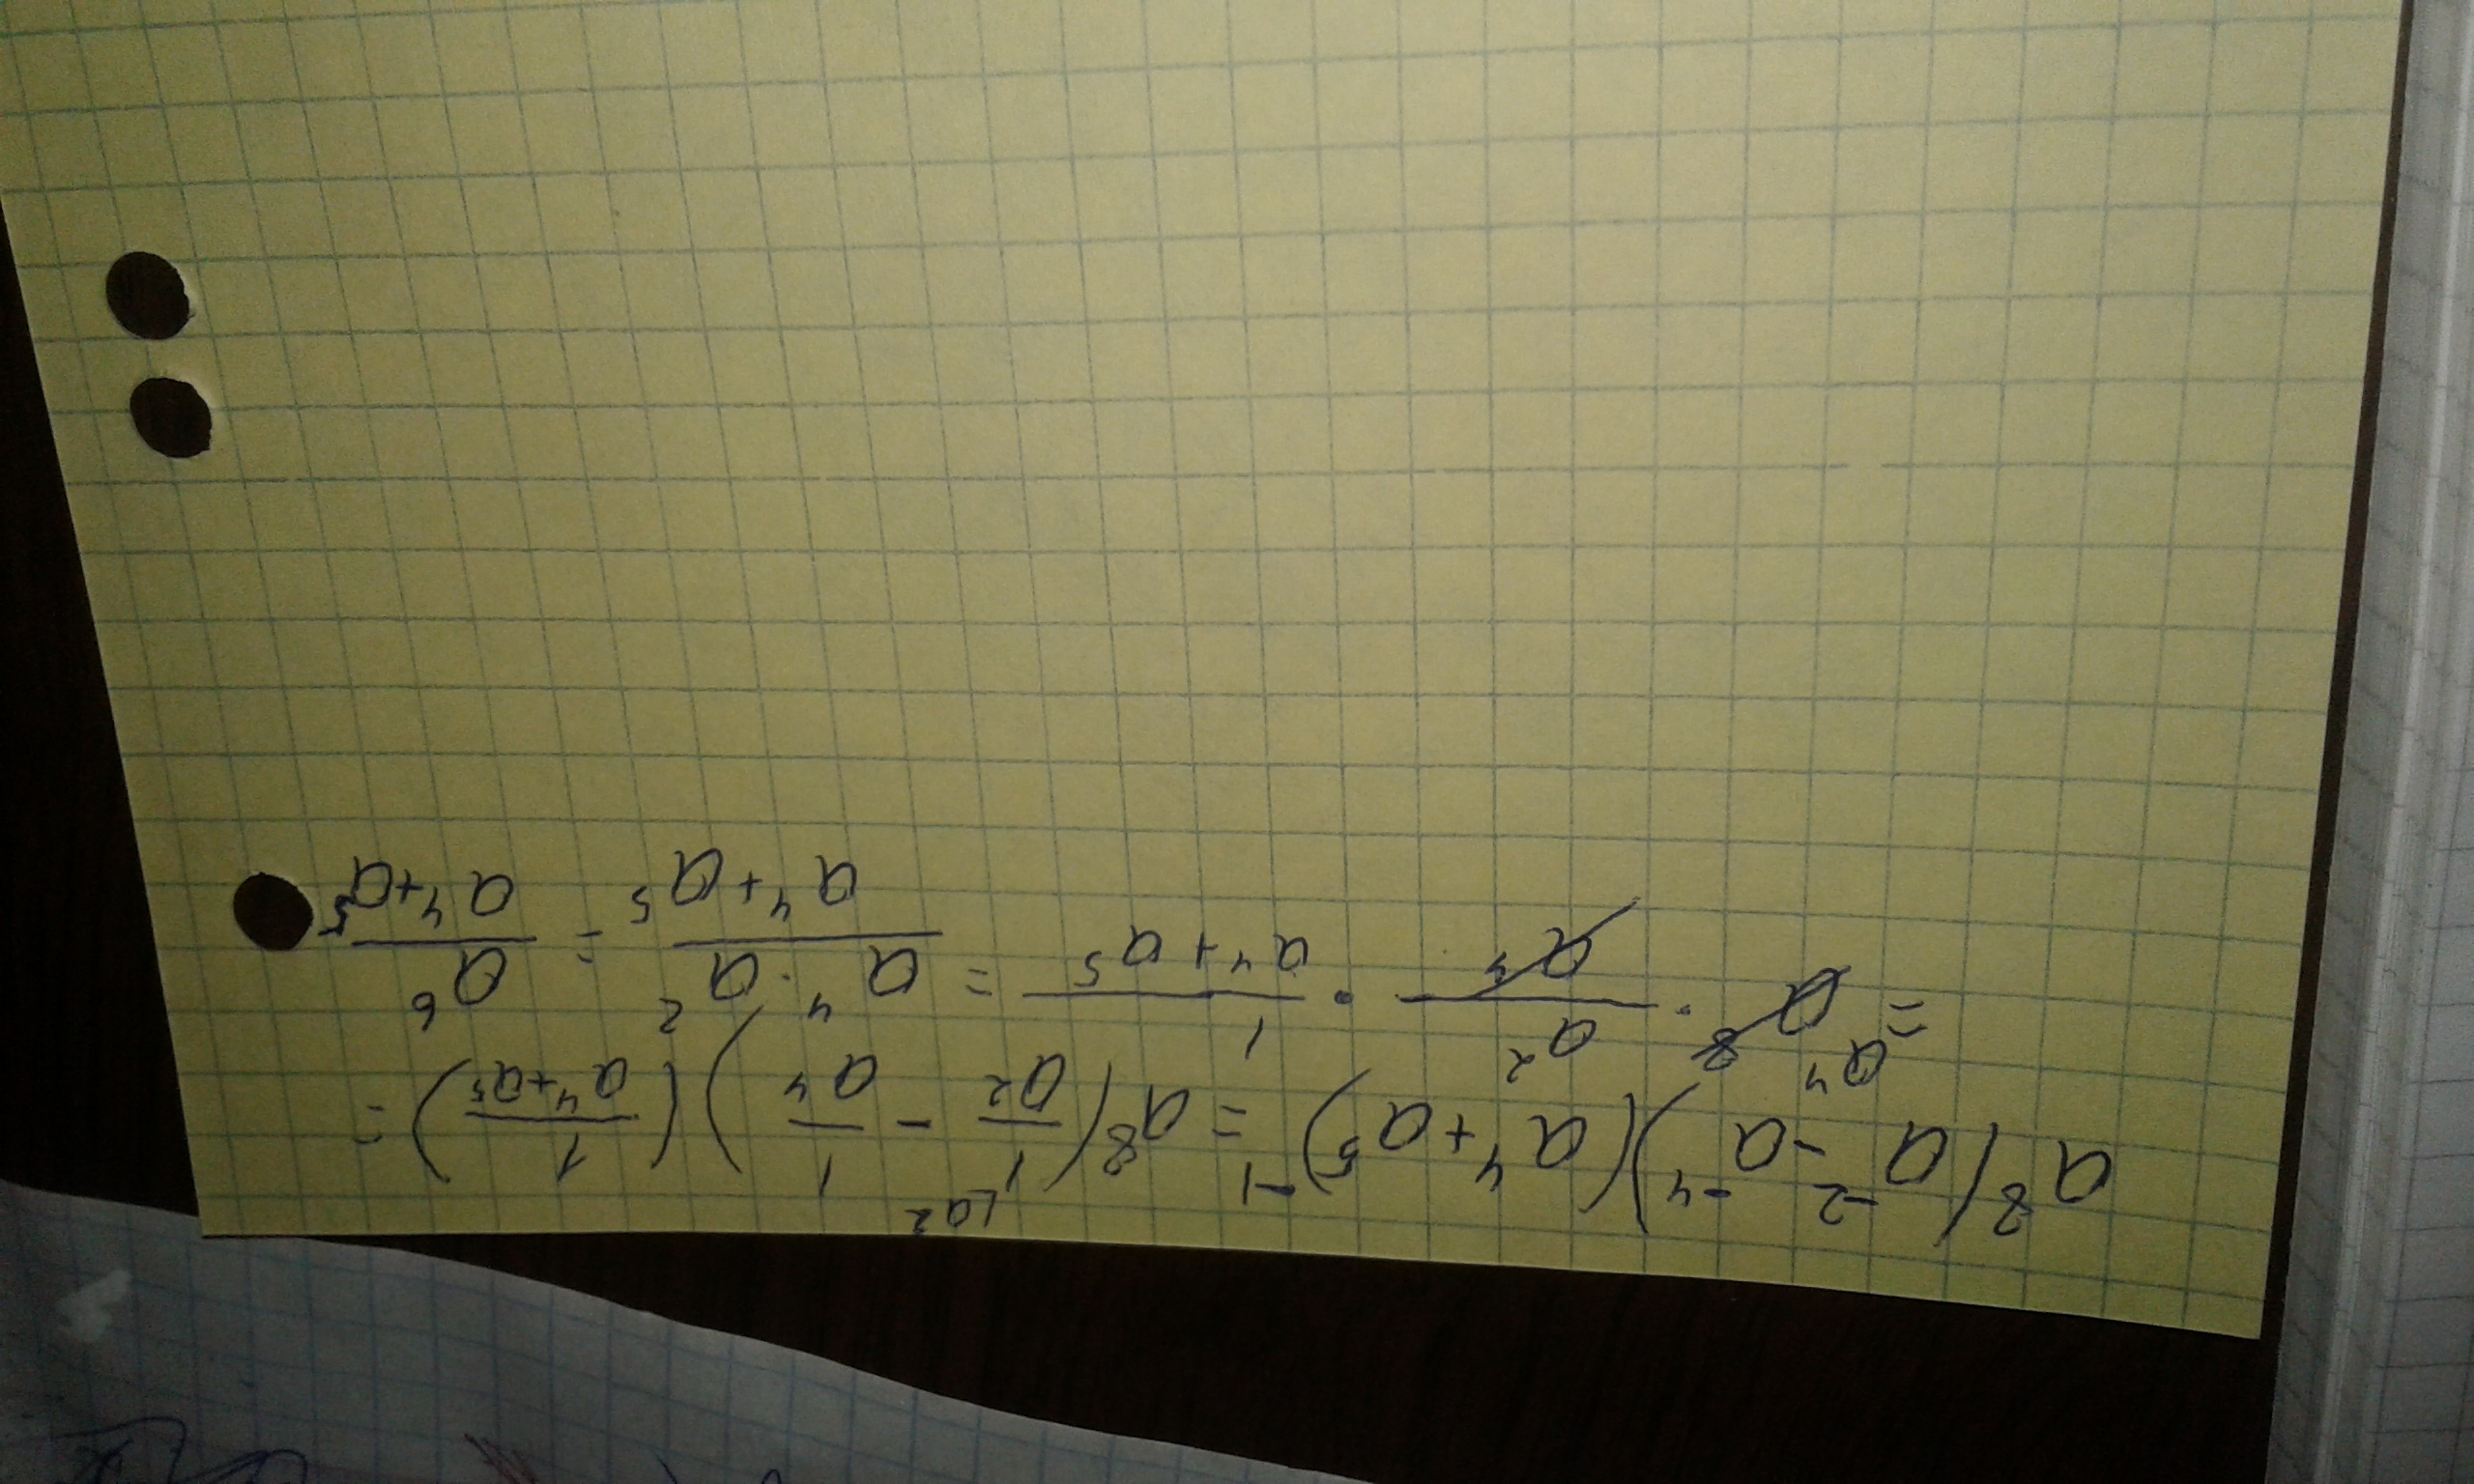 a⁸(a⁻² - a⁻⁴)(a⁴ + a⁵)⁻¹ = a⁸(1/a² ⌊a² - 1/a⁴)(1/(a⁴+a⁵)) =
= a⁸ a⁴ · a²/a⁴ · 1/(a⁴+a⁵) = (a⁴ · a²)/(a⁴+a⁵) = a⁶/(a⁴+a⁵)